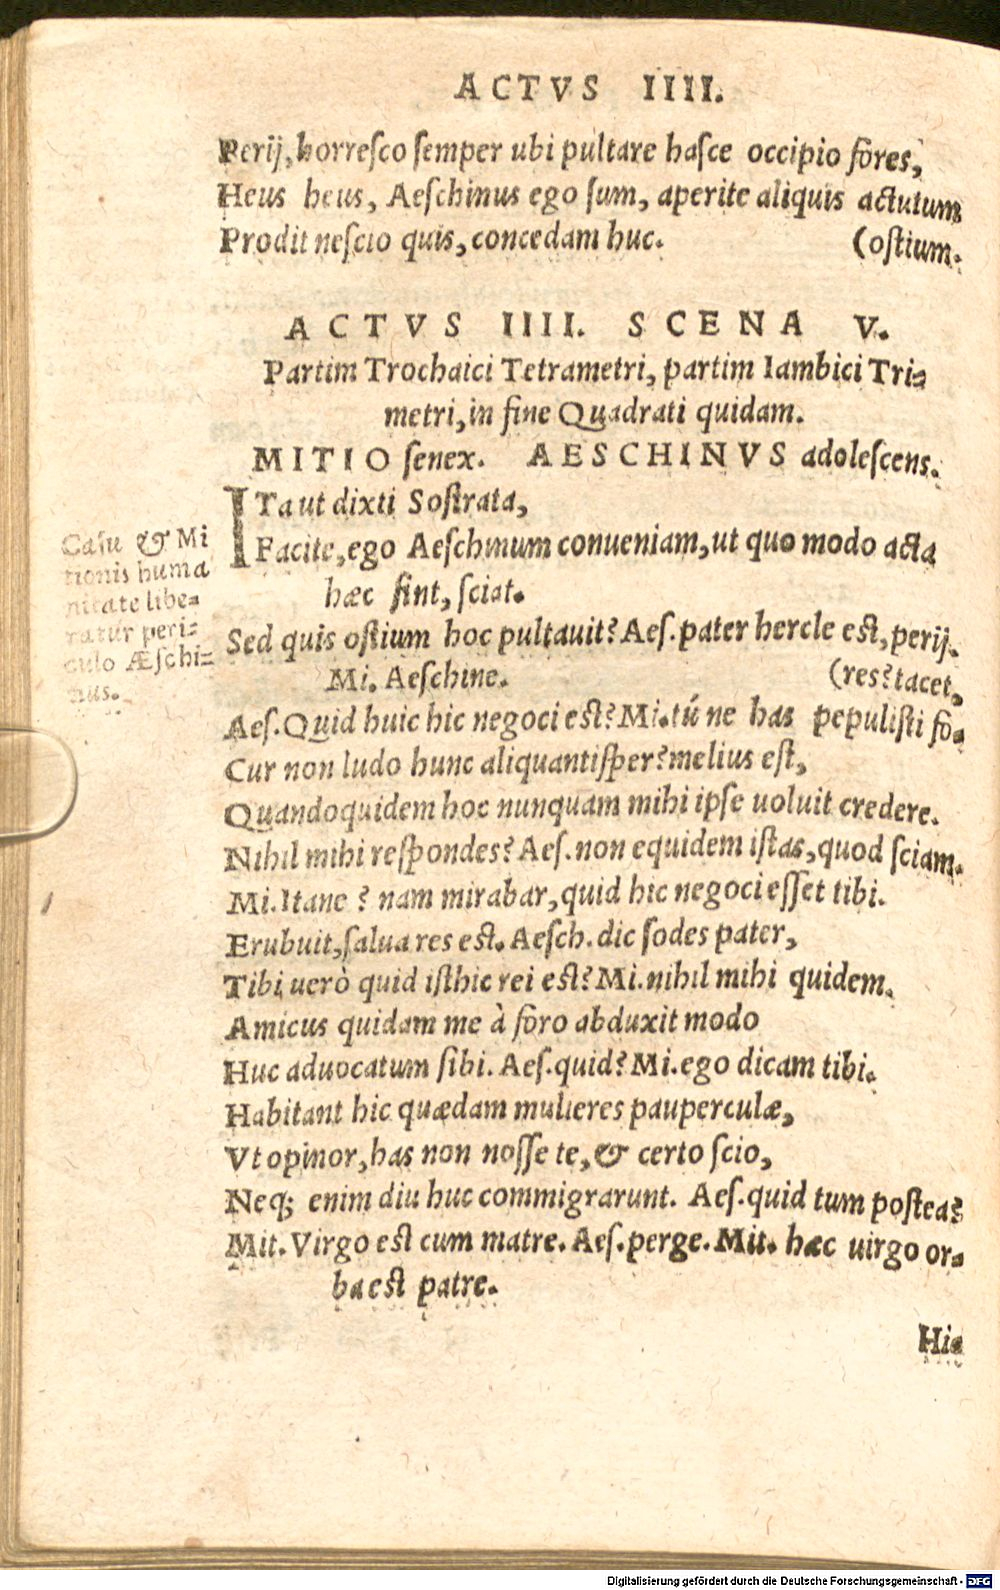 ACTVS IIII.
Perij, horresco semper ubi pultare hasce occipio fores,
Heus heus, Aeschinus ego sum, aperite aliquis actutum
Prodit nescio quis, concedam huc. (ostium.
ACTVS IIII. SCENA V.
Partim Trochaici Tetrametri, partim Iambici Tri-
metri, in fine Quadrati quidam.
MITIO senex. AESCHINVS adolescens.
ITa ut dixti Sostrata,
Facite, ego Aeschinum conueniam, ut quo modo acta
hæc sint, sciat.
Sed quis ostium hoc pultauit? Aes. pater hercle est, perij.
Mi. Aeschine. (res? tacet,
Aes. Quid huic hic negoci est? Mi. tú ne has pepulisti fo-
Cur non ludo hunc aliquantisper? melius est,
Quandoquidem hoc nunquam mihi ipse uoluit credere.
Nihil mihi respondes? Aes. non equidem istas, quod sciam.
Mi. Itane? nam mirabar, quid hic negoci esset tibi.
Erubuit, salua res est. Aesch. dic sodes pater,
Tibi uerò quid isthic rei est? Mi. nihil mihi quidem.
Amicus quidam me à foro abduxit modo
Huc aduocatum sibi. Aes. quid? Mi. ego dicam tibi.
Habitant hic quædam mulieres pauperculæ,
Vt opinor, has non nosse te, & certo scio,
Neq; enim diu huc commigrarunt. Aes. quid tum postea?
Mit. Virgo est cum matre. Aes. perge. Mit. hæc uirgo or-
ba est patre.
Hi-
Casu & Mi
tionis huma
nitate libe-
ratur peri-
culo Æschi-
nus.
Digitalisierung gefördert durch die Deutsche Forschungsgemeinschaft - DFG